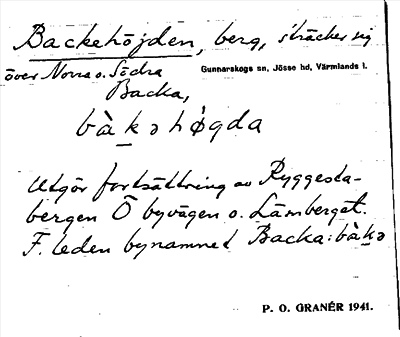 Backehöjden, berg, sträcker sig
över Norra o. Södra
Gunnarskogs sn, Jösse hd, Värmlands l.
Backa,
bàkəhø̀gda
Utgör fortsättning av Ryggesta-
bergen Ö byvägen o. Lämberget.
F. leden bynamnet Backa: bàkə
P. O. GRANÉR 1941.